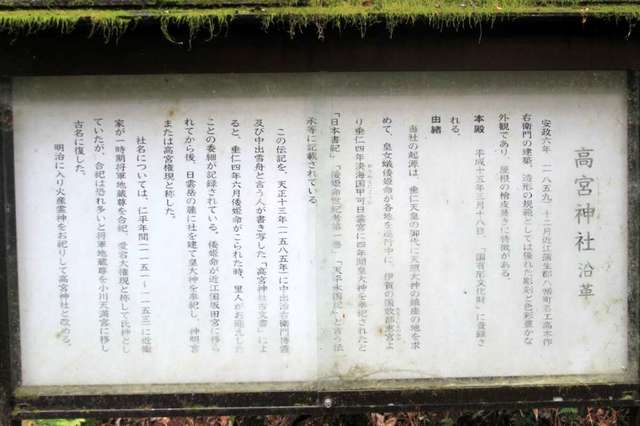 高宮神社沿革
安政六年(一八五九)十二月近江蒲生郡八幡町名工高木作
右衛門の建築、造形の規範としては優れた彫刻と色彩豊かな
外観であり、屋根の檜皮葺きに特徴がある。
本殿 平成十三年三月十八日、「国有形文化財」に登録さ
れる。
由緒
当社の起源は、垂仁天皇の御代に天照大神の鎮座の地を求
めて、皇女倭姫命が各地を巡行中に、伊賀の国敢都美恵宮よ
り垂仁四年淡海国甲可日雲宮に四年間皇大神を奉祀されたと
「日本書記」「倭姫命世紀 」「天 水国記」古書の伝
承等に記載されている。
この伝記を、天正十三年(一五八五年)に中出治右衛門博雅
及び中出雪舟と言う人が書き写した「高宮神社古文書」によ
ると、垂仁四年六月倭姫命がこられた時、里人がお迎えした
ことの委細が記録されている。倭姫命が近江国坂田宮に移ら
れてから後、日雲岳の麓に社を建て皇大神を奉祀し、神明宮
または高宮権現と称した。
社名については、仁平年間(一一五一~一一五三)に近衛
家が一時期将軍地蔵尊を合祀、愛宕大権現と称して氏神とし
ていたが、合祀は恐れ多いと将軍地蔵尊を小川天満宮に移し
古名に復した。
明治に入り火産霊神をお祀りして高宮神社と改める。